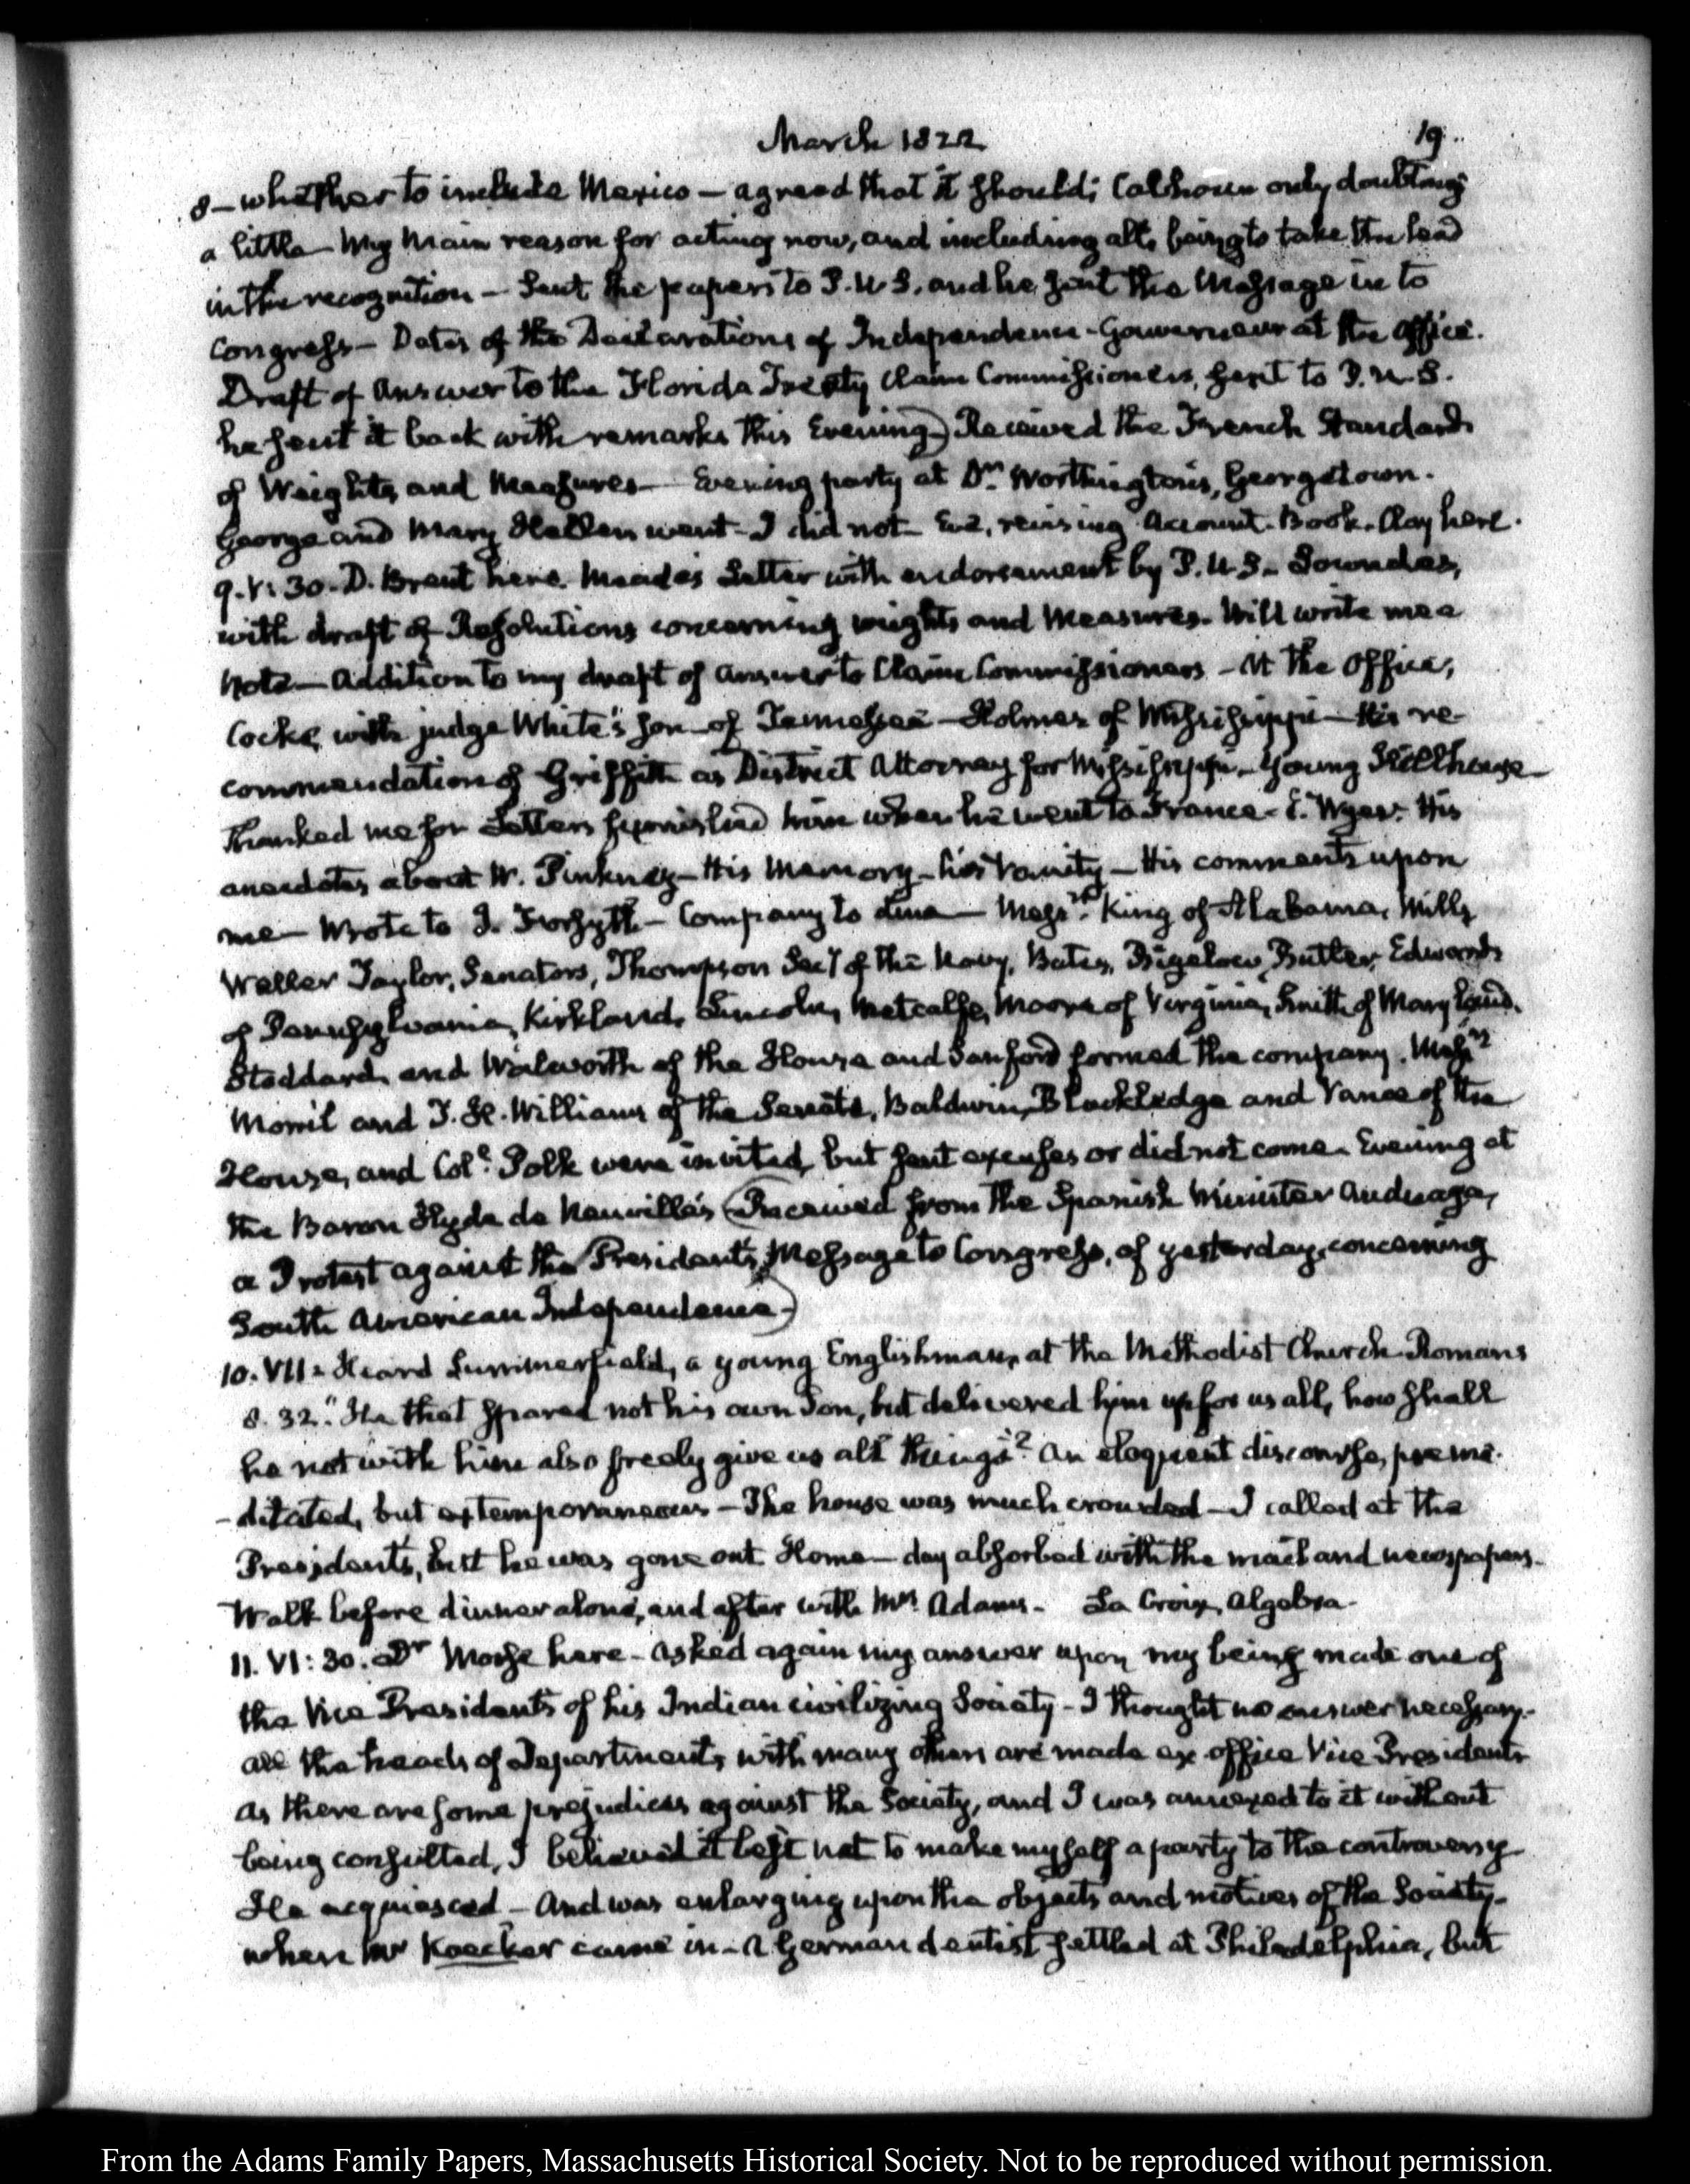 March 1822
19.
8 — whether to include Mexico — agreed that it should; Calhoun only doubting
a little — My main reason for acting now, and including all, being to take the lead
in the recognition — Sent the papers to P. U. S. and he sent the Message in to
Congress — Dates of the Declarations of Independence - Gouverneur at the Office.
Draft of Answer to the Florida Treaty Claim Commissioners, sent to P. U. S.
he sent it back with remarks this Evening) Received the French Standards
of Weights and Measures — Evening party at Dr. Worthington's, Georgetown.
George and Mary Hellen went - I did not - Eve, revising Account-Book. Clay here.
9. V: 30. D. Brent here. Meade's Letter with endorsement by P. U. S. - Lowndes,
with draft of Resolutions concerning weights and Measures. Will write me a
Note — Addition to my draft of answer to Claim Commissioners - At the Office,
Cocke, with judge White's Son of Tennessee — Holmes of Mississippi — His re-
commendation of Griffith as District Attorney for Mississippi - Young
thanked me for Letters furnished him when he went to France - E. Wyer. His
anecdotes about W. Pinkney — His Memory - his Vanity — His comments upon
me — Wrote to J. Forsyth — Company to dine — Messrs. King of Alabama, Mills
Waller Taylor, Senators, Thompson Secy of the Navy, Bates, Bigelow, Butler, Edwards
of Pennsylvania, Kirkland, Lincoln, Metcalfe, Moore of Virginia, Smith of Maryland.
Stoddard, and Walworth of the House and Sanford formed the company. Messrs
Morril and T. H. Williams of the Senate, Baldwin, Blackledge and Vance of the
House, and Coll. Polk were invited, but sent excuses or did not come. Evening at
the Baron Hyde de Neuville's (Received from the Spanish Minister Anduaga,
a Protest against the President's Message to Congress, of yesterday, concerning
South American Independence -)
10. VII: Heard Summerfield, a young Englishman, at the Methodist Church. Romans
8. 32. "He that spared not his own Son, but delivered him up for us all, how shall
he not with him also freely give us all things"? An eloquent discourse, preme-
-ditated, but extemporaneous — The house was much crowded — I called at the
Presidents, but he was gone out. Home — day absorbed with the mail and newspapers.
Walk before dinner alone, and after with Mrs. Adams - La Croix, Algebra.
11. VI: 30. Dr Morse here - asked again my answer upon my being made one of
the Vice Presidents of his Indian civilizing Society - I thought no answer necessary -
all the heads of Departments, with many others are made ex officio Vice Presidents
As there are some prejudices against the Society, and I was annexed to it without
being consulted, I believed it best not to make myself a party to the controversy
He acquiesced — And was enlarging upon the objects and motives of the Society -
when Mr Koecker came in - A German dentist settled at Philadelphia, but
From the Adams Family Papers, Massachusetts Historical Society. Not to be reproduced without permission.